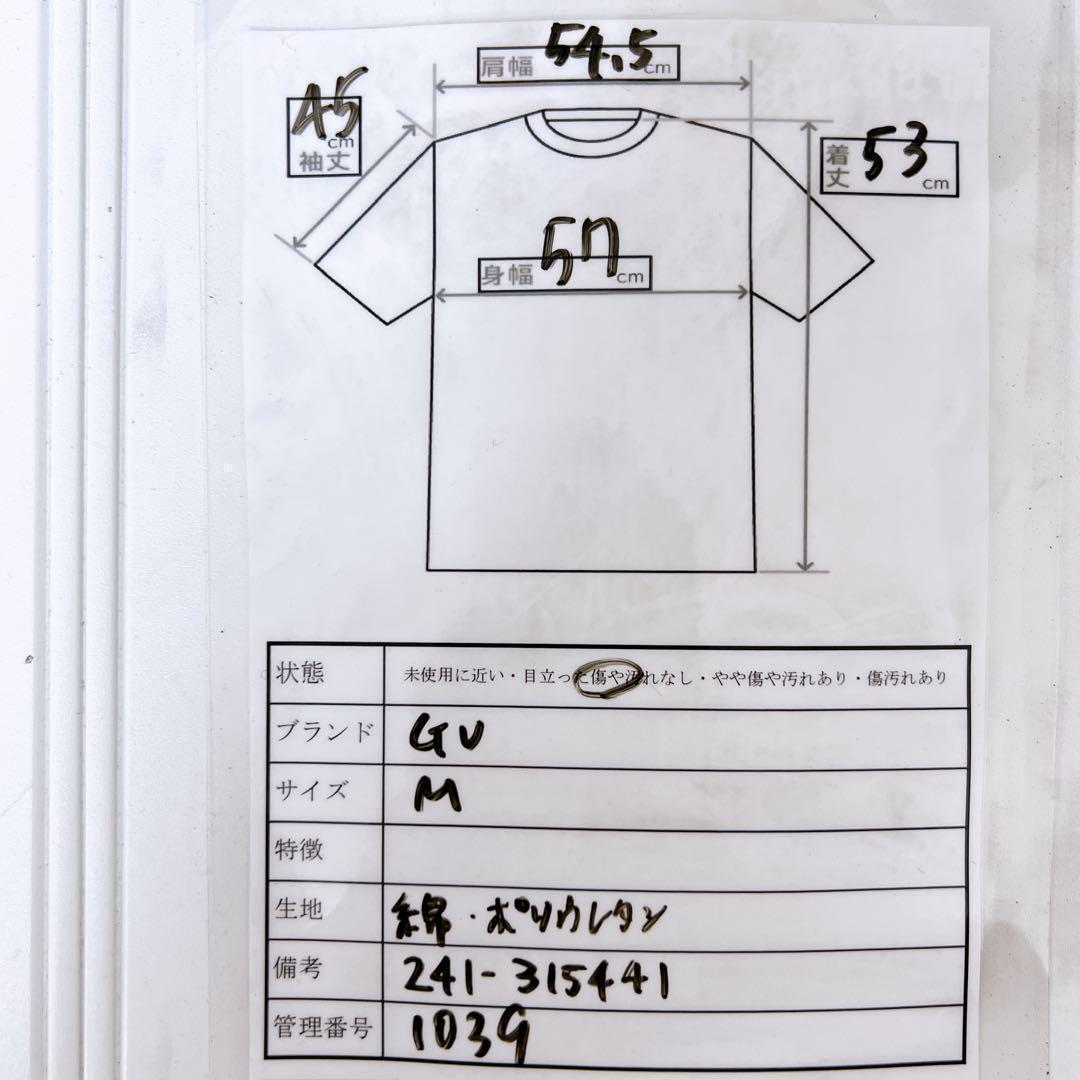 肩幅 54.5 cm
45 cm
袖丈
着丈 53 cm
身幅 57 cm
状態 未使用に近い・目立った傷や汚れなし・やや傷や汚れあり・傷汚れあり
ブランド GU
サイズ M
特徴
生地 綿・ポリウレタン
備考 241-315441
管理番号 1039